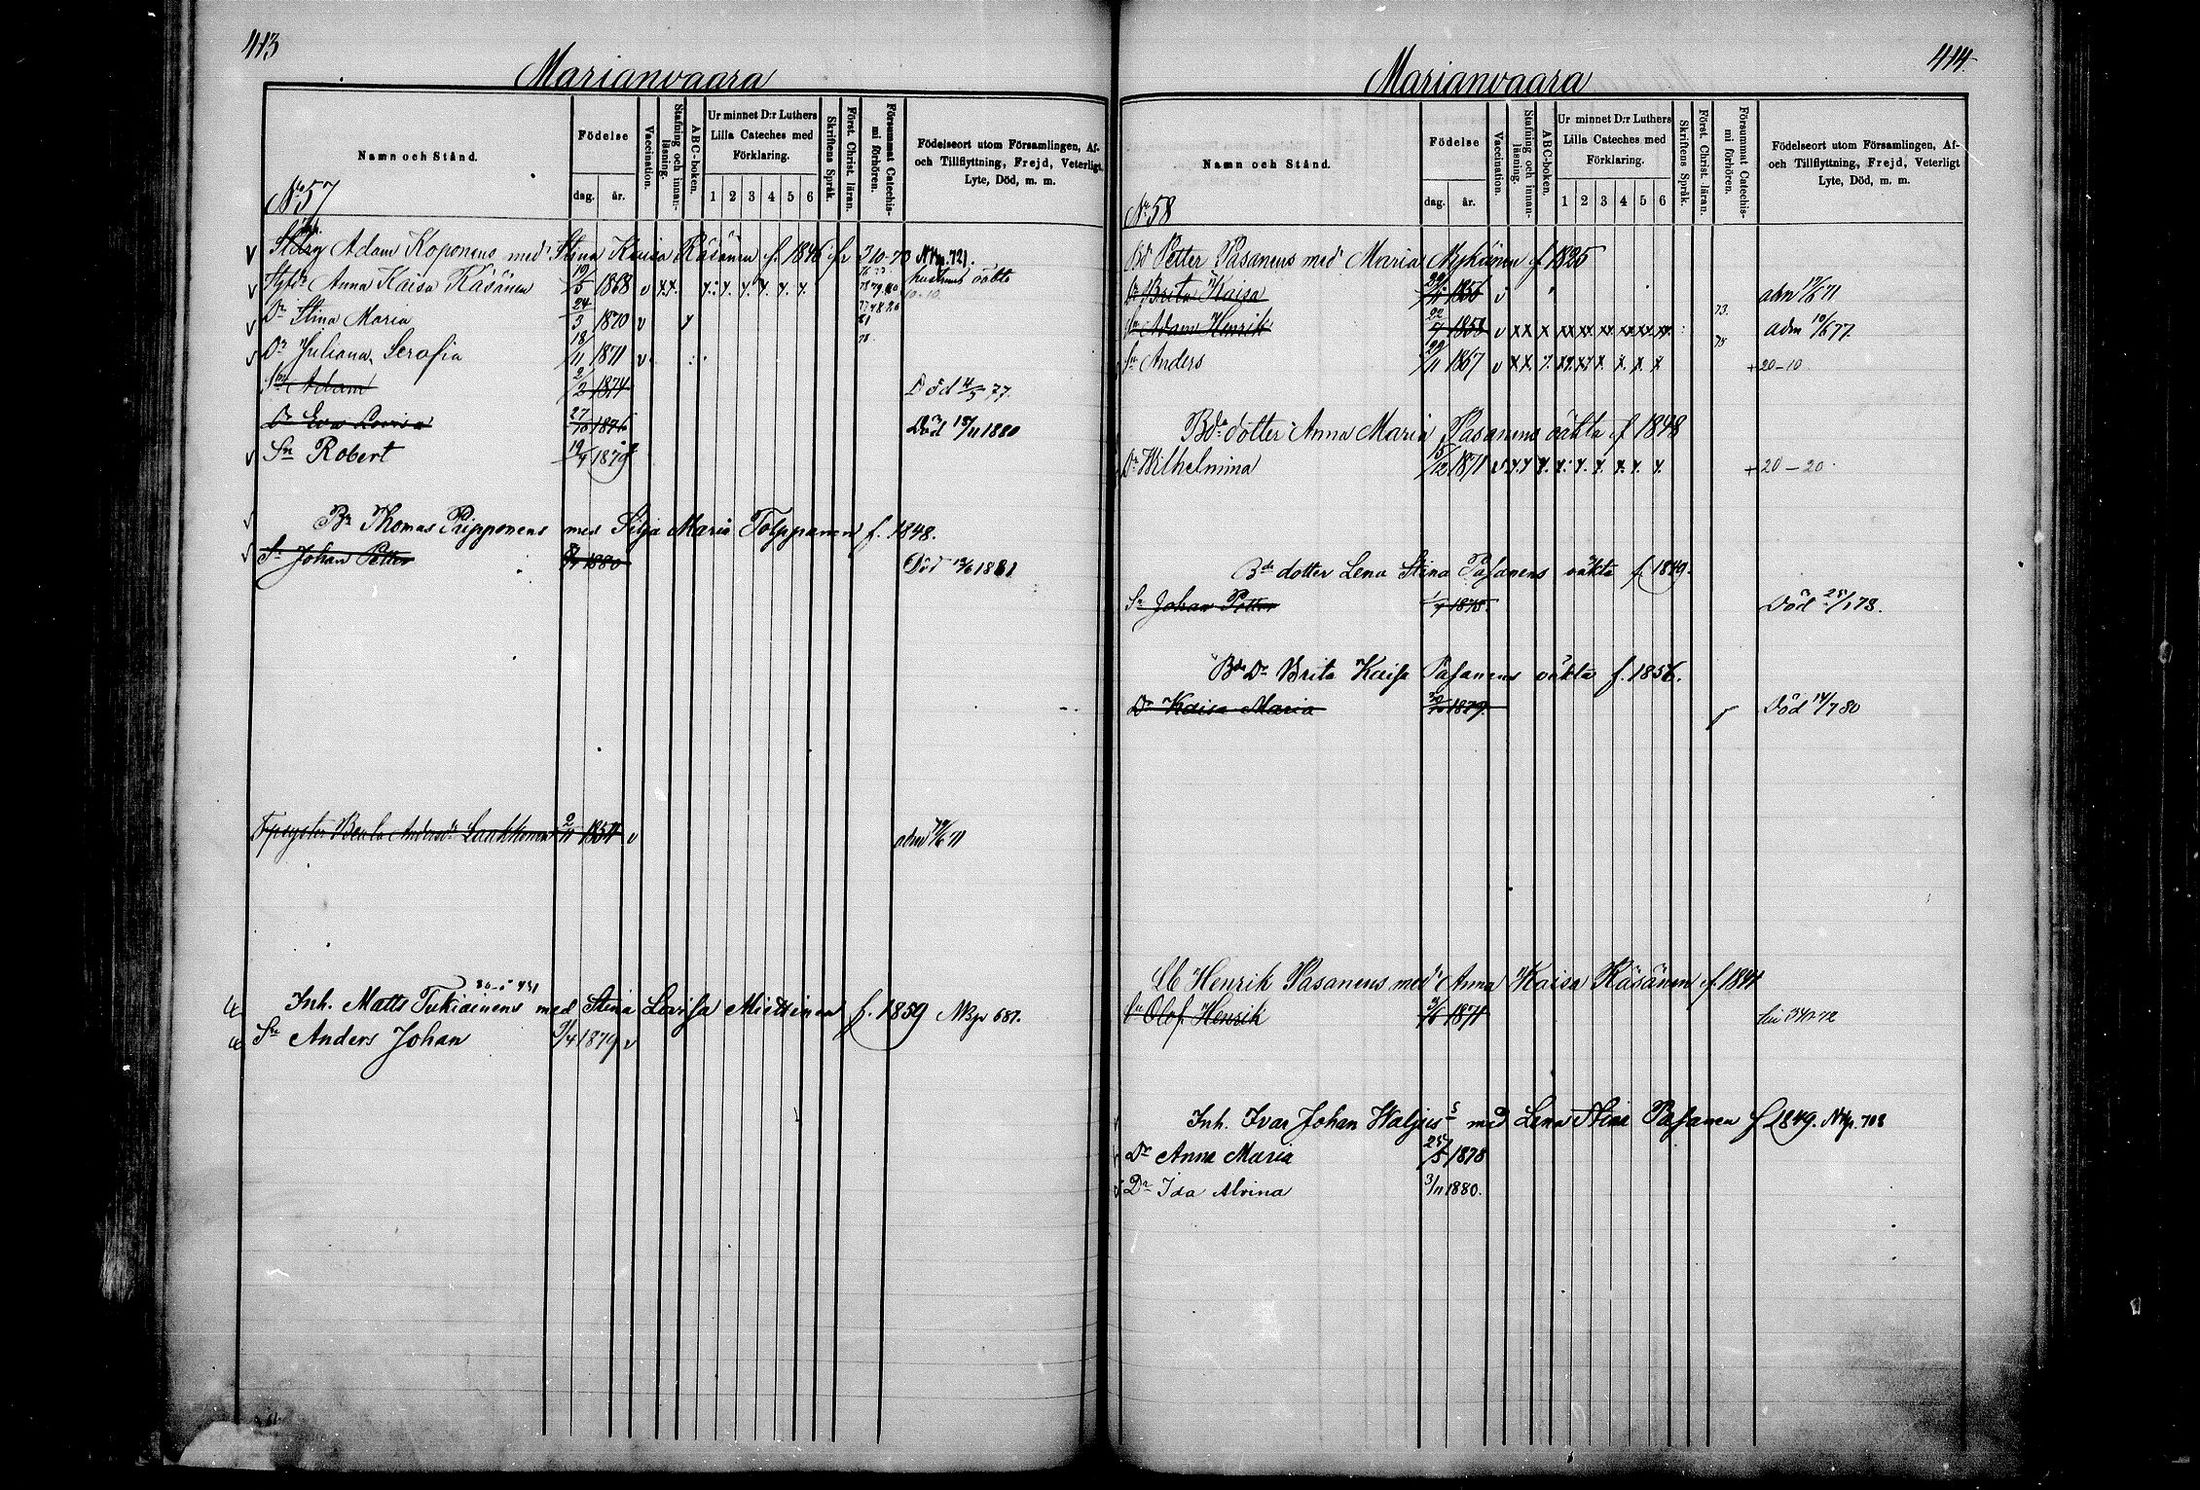 413
Marianvaara
Namn och Stånd.
Födelse
dag. år.
Vaccination.
Stafning och innan-läsning.
ABC-boken.
Ur minnet D:r Luthers Lilla Cateches med Förklaring.
1 2 3 4 5 6
Skriftens Språk.
Först. Christ. läran.
Försummat Catechis-mi förhören.
Födelseort utom Församlingen, Af-
och Tillflyttning, Frejd, Veterligt
Lyte, Död, m. m.
No 57
Adam Koponens med Stina Kaisa Räsänen f. 1846
Anna Kaisa Räsänen 19/5 1868 v
Dr Stina Maria 24/3 1870 v
Dr Juliana Serafia 18/11 1871 v
Sn Adam 2/2 1874 Död 4/5 77.
Dr Eva Lovisa 27/10 1876 Död 18/11 1880
Sn Robert 19/4 1879
Br Thomas Piipponens med Silja Maria Tolppanen f. 1848.
Sn Johan Petter 1880 Död 12/6 1881
Beata Andersdr Laakkonen 2/11 1854 v adm 10/6 71
Inh. Matts Tukiainens med Stina Lovisa Miettinen f. 1859 NBp 687.
Sn Anders Johan 1/4 1879 v
414
Marianvaara
Namn och Stånd.
Födelse
dag. år.
Vaccination.
Stafning och innan-läsning.
ABC-boken.
Ur minnet D:r Luthers Lilla Cateches med Förklaring.
1 2 3 4 5 6
Skriftens Språk.
Först. Christ. läran.
Försummat Catechis-mi förhören.
Födelseort utom Församlingen, Af-
och Tillflyttning, Frejd, Veterligt
Lyte, Död, m. m.
No 58
Bd Petter Pasanens med Maria Nykänen f 1825
Dr Brita Kaisa 1856 v adm 10/6 71
Sn Adam Henrik 1858 v adm 10/6 77.
Sn Anders 29/11 1867 v + 20-10
Bde dotter Anna Maria Pasanens oäkta f. 1848
Dr Wilhelmina 15/12 1871 v + 20-20
Bde dotter Lena Stina Pasanens oäkta f. 1849.
Sn Johan Petter 1875 Död 25/1 78.
Bde Dr Brita Kaisa Pasanens oäkta f. 1856.
Dr Kaisa Maria 1879. Död 14/7 80
Henrik Pasanens med Anna Kaisa Räsänen f. 1844
Sn Olof Henrik 1871
Inh. Ivar Johan Waljus med Lena Stina Pasanen f 1849. NBp. 708
Dr Anna Maria 25/5 1878
Dr Ida Alvina 3/11 1880.